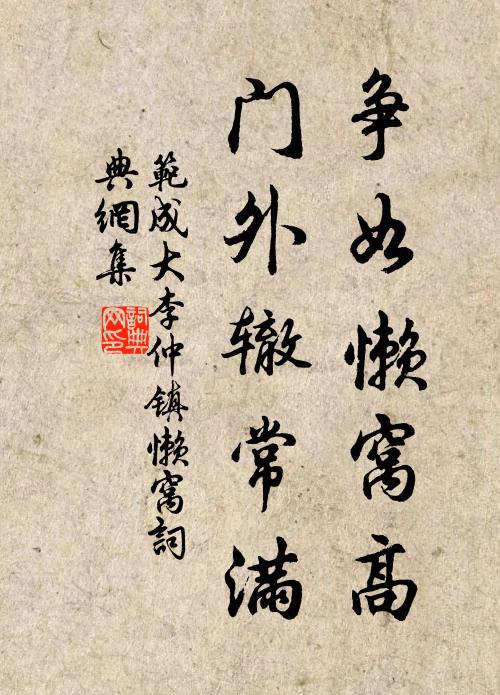 争如懒窝高
门外辙常满
範成大李仲镇懒窝詞
典網集
詞典
网印